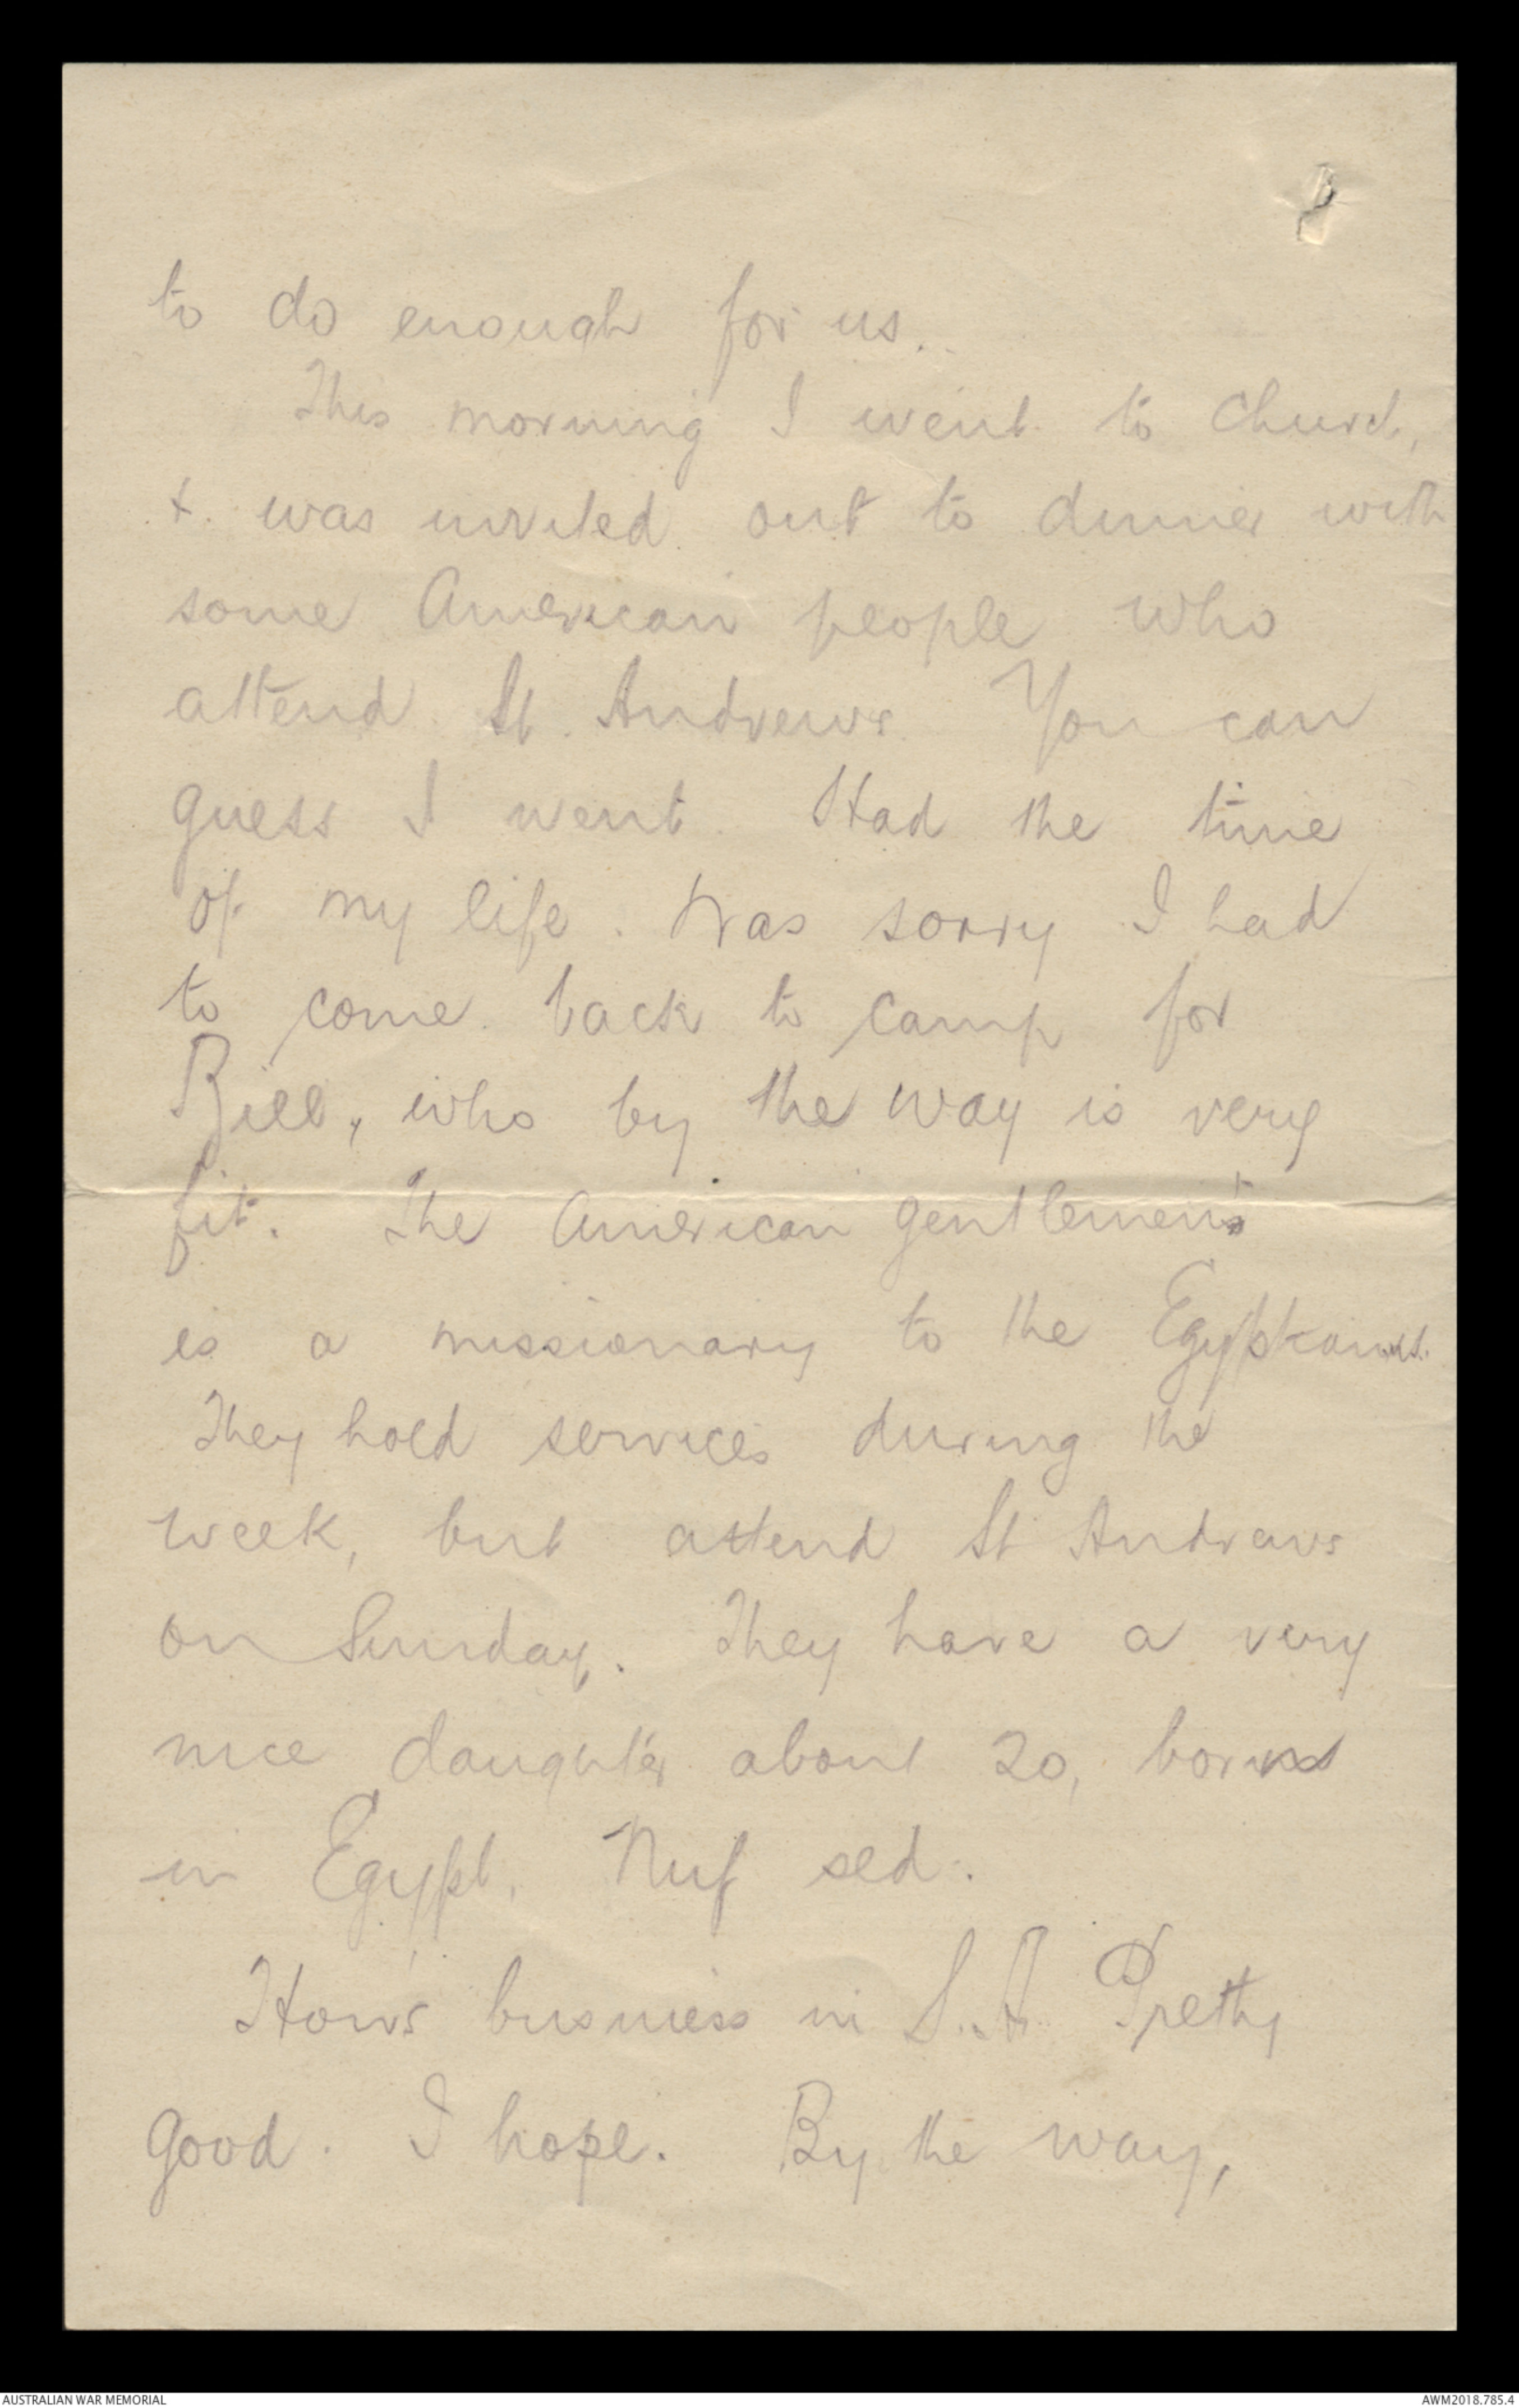 to do enough for us.
This morning I went to Church,
& was invited out to dinner with
some American people who
attend St. Andrews. You can
guess I went. Had the time
of my life. Was sorry I had
to come back to camp for
Bill, who by the way is very
fit. The American gentlemen
is a missionary to the Egyptians.
They hold services during the
week, but attend St Andrews
on Sunday. They have a very
nice daughter about 20, born
in Egypt, Nuf sed.
How's business in S.A. Pretty
good. I hope. By the way,
AUSTRALIAN WAR MEMORIAL
AWM2018.785.4